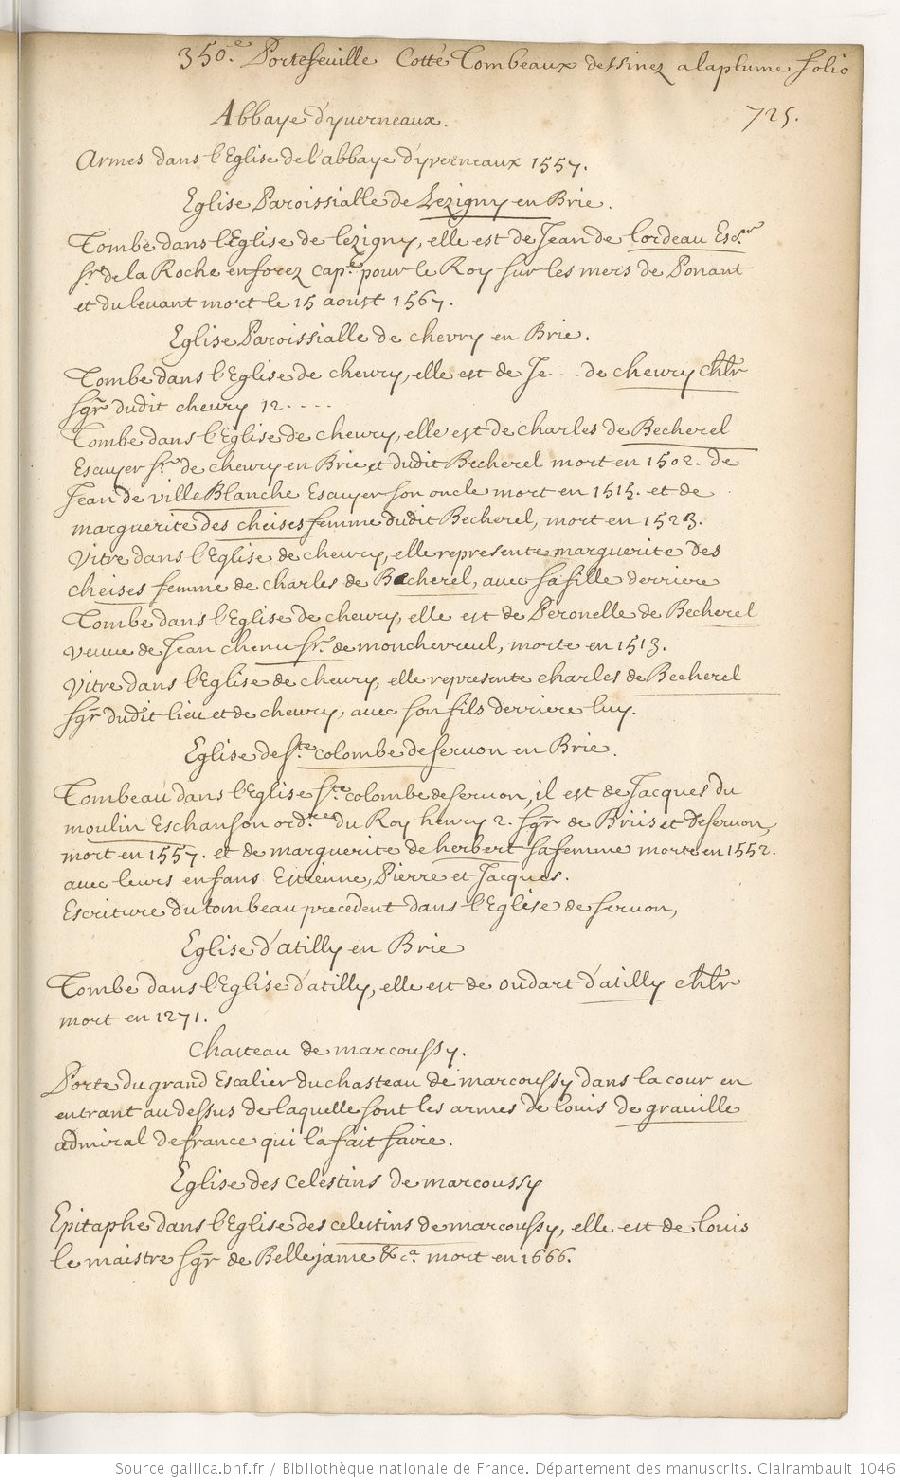 350.e Portefeuille Cotté Tombeaux dessinez a la plume folio
Abbaye d'yverneaux. 725.
Armes dans l'Eglise de l'abbaye d'yverneaux 1557.
Eglise Paroissialle de Lezigny en Brie.
Tombe dans l'Eglise de lezigny, elle est de Jean de Cordeau Escr.
sr. de la Roche en forez cap.e pour le Roy sur les mers de Ponant
et du levant mort le 15 aoust 1567.
Eglise Paroissialle de chevry en Brie.
Tombe dans l'Eglise de chevry, elle est de Je... de chevry chlr
sgr dudit chevry 12....
Tombe dans l'Eglise de chevry, elle est de charles de Becherel
Escuyer sr. de chevry en Brie et dudit Becherel mort en 1502. de
Jean de ville Blanche Escuyer son oncle mort en 1515. et de
marguerite des cheises femme dudit Becherel, mort en 1523.
Vitre dans l'Eglise de chevry, elle represente marguerite des
cheises femme de charles de Becherel, avec sa fille derriere
Tombe dans l'Eglise de chevry, elle est de Peronelle de Becherel
veuve de Jean chenu sr. de monchevreul, morte en 1513.
Vitre dans l'Eglise de chevry, elle represente charles de Becherel
sgr dudit lieu et de chevry, avec son fils derriere luy.
Eglise de ste. colombe de servon en Brie.
Tombeau dans l'Eglise ste colombe de servon, il est de Jacques du
moulin Eschanson ord.re du Roy henry 2. sgr de Briis et de servon,
mort en 1557. et de marguerite de herbert sa femme morte en 1552.
avec leurs enfans Estienne, Pierre et Jacques.
Escriture du tombeau precedent dans l'Eglise de servon,
Eglise d'atilly en Brie
Tombe dans l'Eglise d'atilly, elle est de oudart d'atilly chlr
mort en 1271.
Chasteau de marcoussy.
Porte du grand Escalier du chasteau de marcoussy dans la cour en
entrant au dessus de laquelle sont les armes de louis de graville
admiral de france qui l'a fait faire.
Eglise des celestins de marcoussy
Epitaphe dans l'Eglise des celestins de marcoussy, elle est de louis
le maistre sgr de Bellejame &c.a mort en 1666.
Source gallica.bnf.fr / Bibliothèque nationale de France. Département des manuscrits. Clairambault 1046